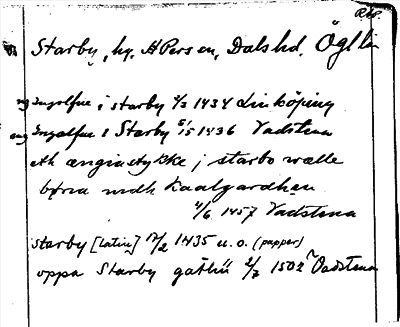 Rep.
Starby, hg. APersen, Dalshd. Ögl. län
ing Ingolfue i starby 2/3 1434 Linköping
ing Ingolfue i Starby 5/15 1436 Vadstena
eth ængiastykke j starbo wælle
byria medh kaalgardhen
4/6 1457 Vadstena
starby [latin] 17/2 1435 u.o. (papper)
oppa Starby gatu 2/7 1502 Vadstena